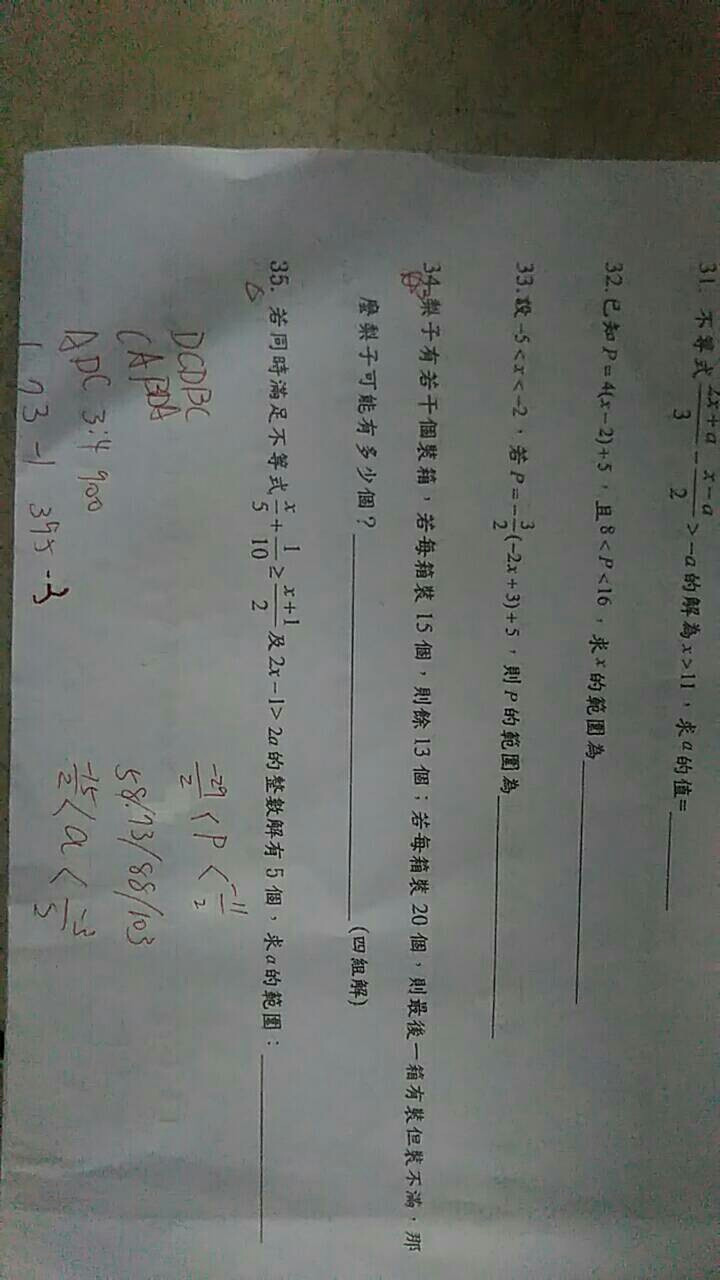 31. 不等式 (2x+a)/3 - (x-a)/2 > -a 的解為 x>11，求 a 的值=
32. 已知 P=4(x-2)+5，且 8<P<16，求 x 的範圍為
33. 設 -5<x<-2，若 P=-3/2(-2x+3)+5，則 P 的範圍為
34. 梨子有若干個裝箱，若每箱裝 15 個，則餘 13 個；若每箱裝 20 個，則最後一箱有裝但裝不滿，那
麼梨子可能有多少個？ (四組解)
35. 若同時滿足不等式 x/5 + 1/10 ≥ (x+1)/2 及 2x-1>2a 的整數解有 5 個，求 a 的範圍：
DCDBC
CABDA
-29/2 < P < -11/2
58/73/88/103